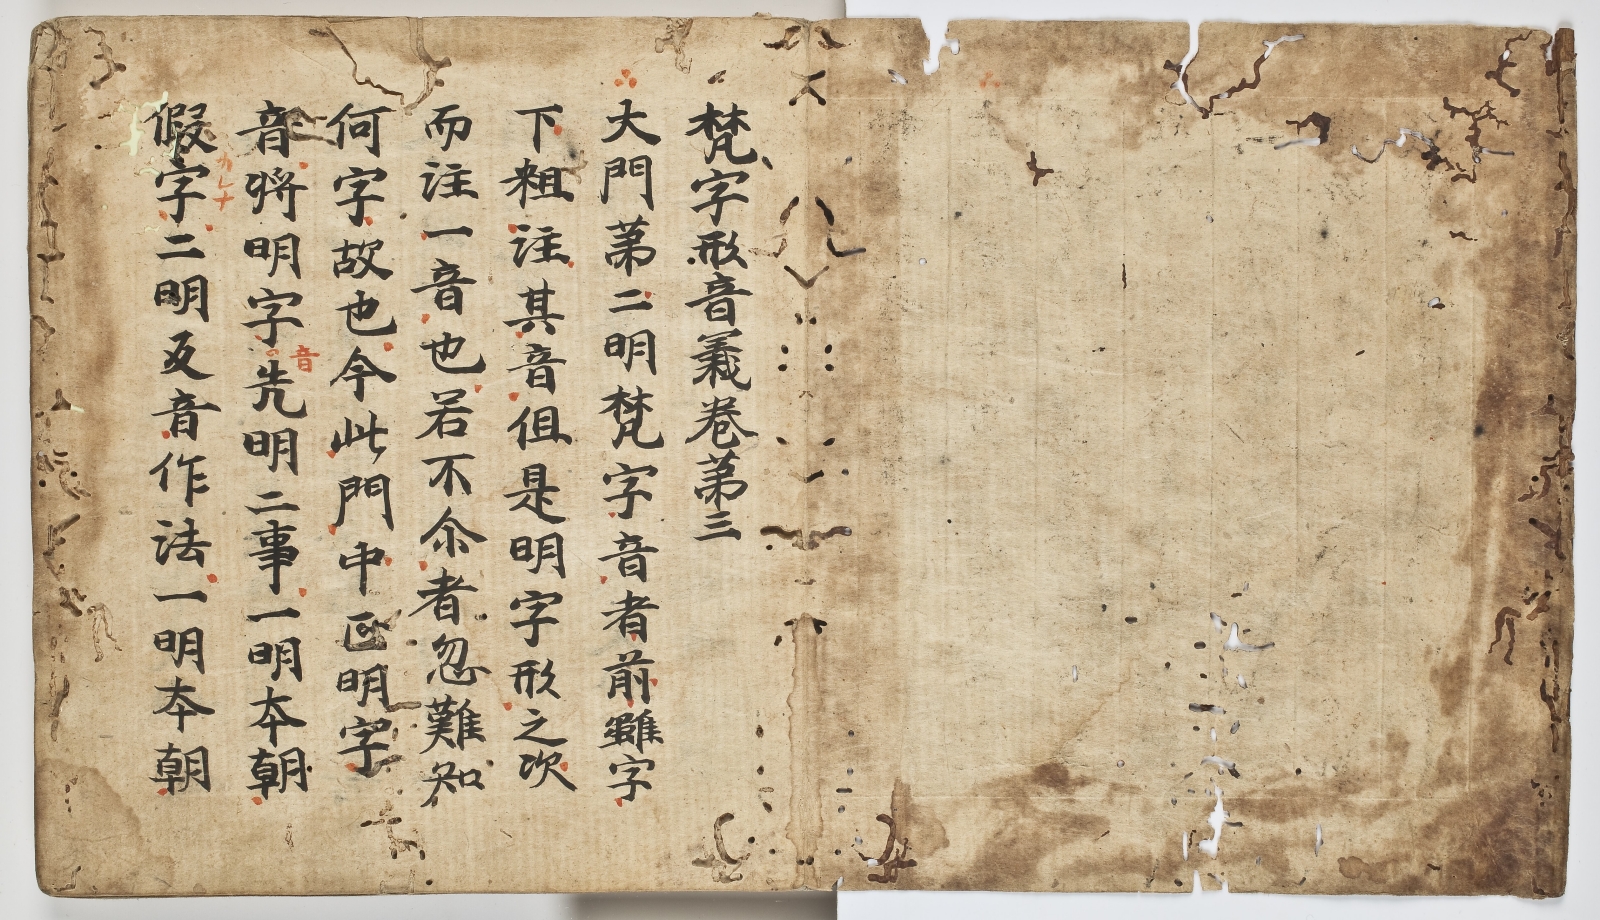 梵字形音義卷第三
大門第二明梵字音者前雖字
下粗注其音但是明字形之次
而注一音也若不尒者忽難知
何字故也今此門中正明字
音將明字先明二事一明本朝
音
假字二明反音作法一明本朝
カレナ